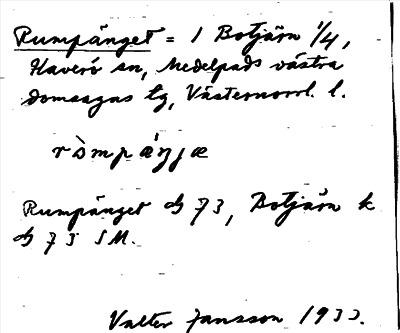 Rumpänget = 1 Botjärn 1/4,
Haverö sn, Medelpads västra
domsagas tg, Västernorrl. l.
ròmpæ̀ŋjæ
Rumpänget db 73, Botjärn k
db 73 SM.
Valter Jansson 1933.